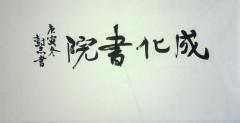 成化書院
庚寅冬